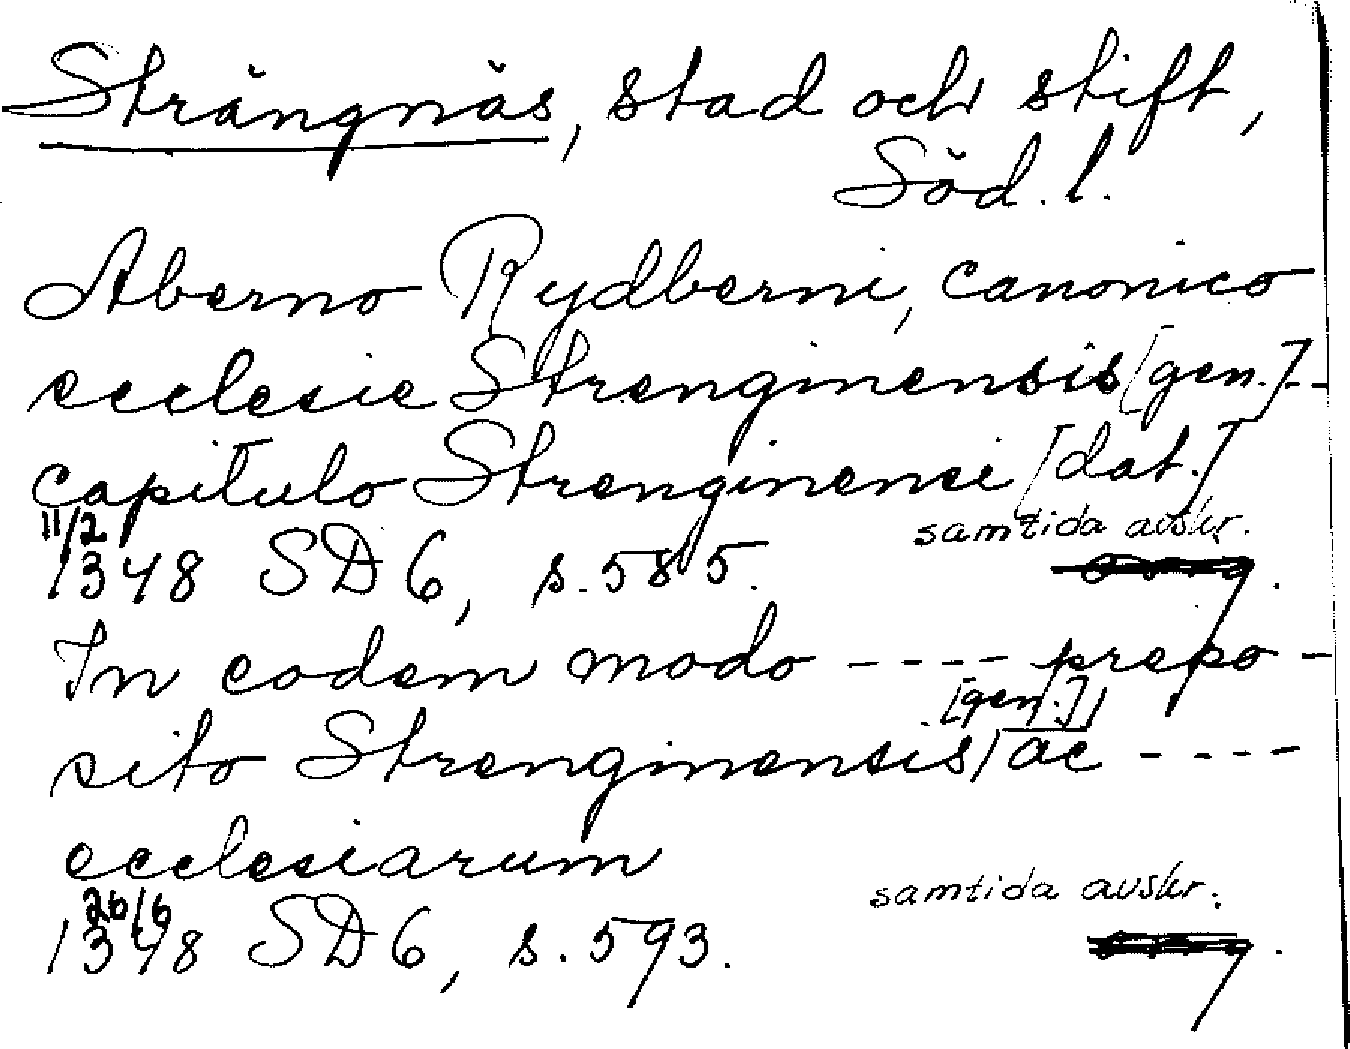 Strängnäs, stad och stift,
Söd. l.
Aberno Rydberni, canonico
ecclesie Strenginensis [gen.] --
capitulo Strenginensi [dat.]
11/2 samtida avskr.
1348 SD 6, s. 585.
In eodem modo ---- prepo-
[gen.]
sito Strenginensis, ac ----
ecclesiarum
26/6 samtida avskr.
1348 SD 6, s. 593.